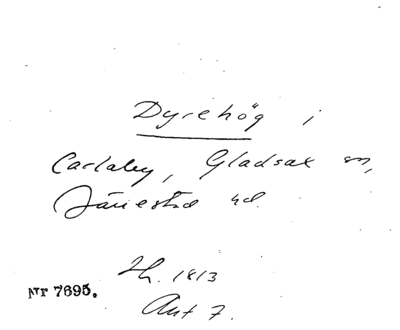 Dyrehög i
Carlaby, Gladsax sn,
Järrestad hd.
Ih. 1813
Ant 7.
Nr 7695.